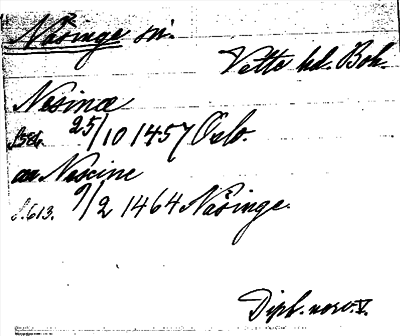 Nåsinge sn.
Vette hd. Boh.
Nesinæ
s. 586. 25/10 1457 Oslo.
au Nesine
s. 613. 9/2 1464 Nåsinge.
Dipl. norv. V.